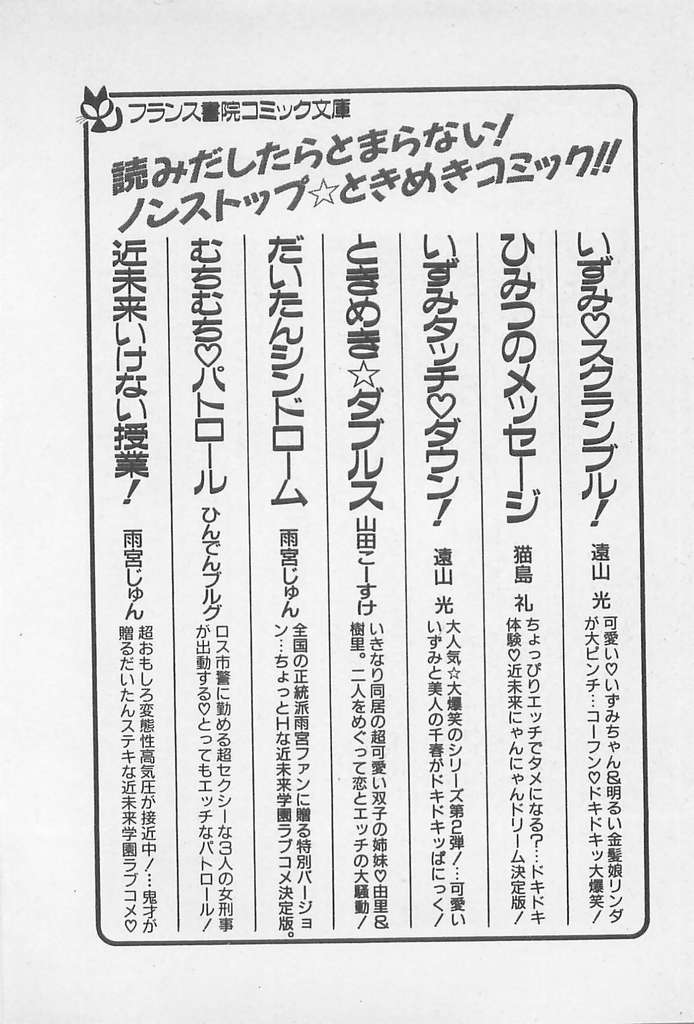 フランス書院コミック文庫
読みだしたらとまらない!
ノンストップ☆ときめきコミック!!
いずみ♡スクランブル!
遠山 光
可愛い♡いずみちゃん&明るい金髪娘リンダ
が大ピンチ…コーフン♡ドキドキッ大爆笑!
ひみつのメッセージ
猫島 礼
ちょっぴりエッチでタメになる?…ドキドキ
体験♡近未来にゃんにゃんドリーム決定版!
いずみタッチ♡ダウン!
遠山 光
大人気☆大爆笑のシリーズ第2弾!…可愛い
いずみと美人の千春がドキドキッぱにっく!
ときめき☆ダブルス
山田こーすけ
いきなり同居の超可愛い双子の姉妹♡由里&
樹里。二人をめぐって恋とエッチの大騒動!
だいたんシンドローム
雨宮じゅん
全国の正統派雨宮ファンに贈る特別バージョ
ン…ちょっとHな近未来学園ラブコメ決定版。
むちむち♡パトロール
ひんでんブルグ
ロス市警に勤める超セクシーな3人の女刑事
が出動する♡とってもエッチなパトロール!
近未来いけない授業!
雨宮じゅん
超おもしろ変態性高気圧が接近中!…鬼才が
贈るだいたんステキな近未来学園ラブコメ♡